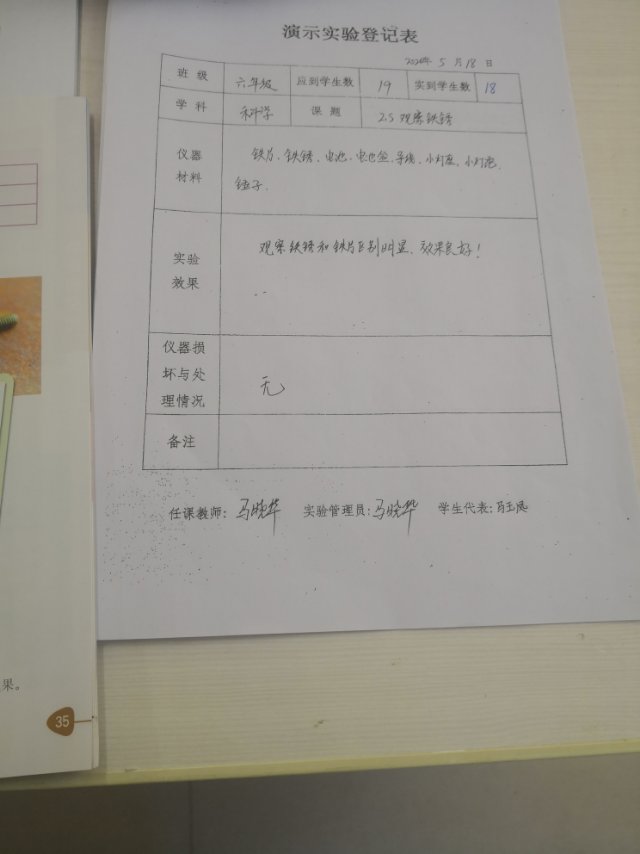 演示实验登记表
2024年 5 月 18 日
班 级 六年级 应到学生数 19 实到学生数 18
学 科 科学 课 题 2.5 观察铁锈
仪器
材料
铁片、铁锈、电池、电池盒、导线、小灯座、小灯泡、
锤子.
实验
效果
观察铁锈和铁片区别明显、效果良好!
仪器损
坏与处
理情况
无
备注
任课教师: 马晓华 实验管理员: 马晓华 学生代表:
果。
35